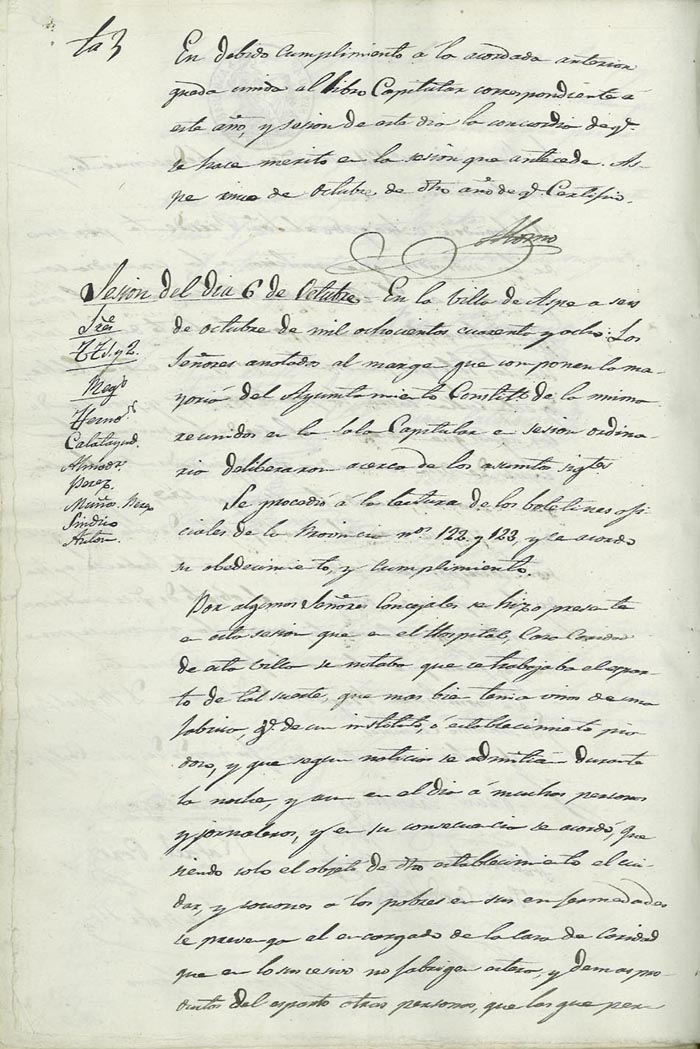 ta3
En debido cumplimiento á lo acordado anterior
queda unida al libro Capitular correspondiente á
este año, y sesion de este dia la concordia de qe.
se hace merito en la sesion que antecede. As-
pe nueve de Octubre de dho año de qe. Certifico.
Sesion del dia 6 de Octubre. En la Villa de Aspe a seis
de octubre de mil ochocientos cuarenta y ocho: Los
Señores anotados al margen que componen la ma-
yoria del Ayuntamiento Constitl. de la misma
reunidos en la Sala Capitular en sesion ordina-
ria deliberaron acerca de los asuntos sigtes
Sres
TT 1 y 2.
Regs
Hernz.
Calatayud.
Almodr.
Perez.
Muñoz.
Sindico
Anton.
Se procedió á la lectura de los boletines ofi-
ciales de la Provincia nos. 122 y 123, y se acordo
su obedecimiento, y cumplimiento.
Por algunos Señores Concejales se hizo presente
en esta sesion que en el Hospital, Casa Caridad
de esta Villa se notaba que se trabajaba el espar-
to de tal suerte, que mas bien tenia visos de una
fabrica, qe. de un instituto, ó establecimiento pia-
doso, y que segun noticias se admitian durante
la noche, y aun en el dia á muchas personas
y jornaleros, y en su consecuencia se acordó, que
siendo solo el objeto de dho establecimiento el cui-
dar, y socorrer a los pobres en sus enfermedades
se prevenga al encargado de la Casa de Caridad
que en lo sucesivo no fabriquen estera, y demas pro-
ductos del esparto otras personas, que las que per-